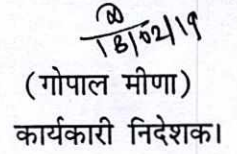 18/02/19
(गोपाल मीणा)
कार्यकारी निदेशक।